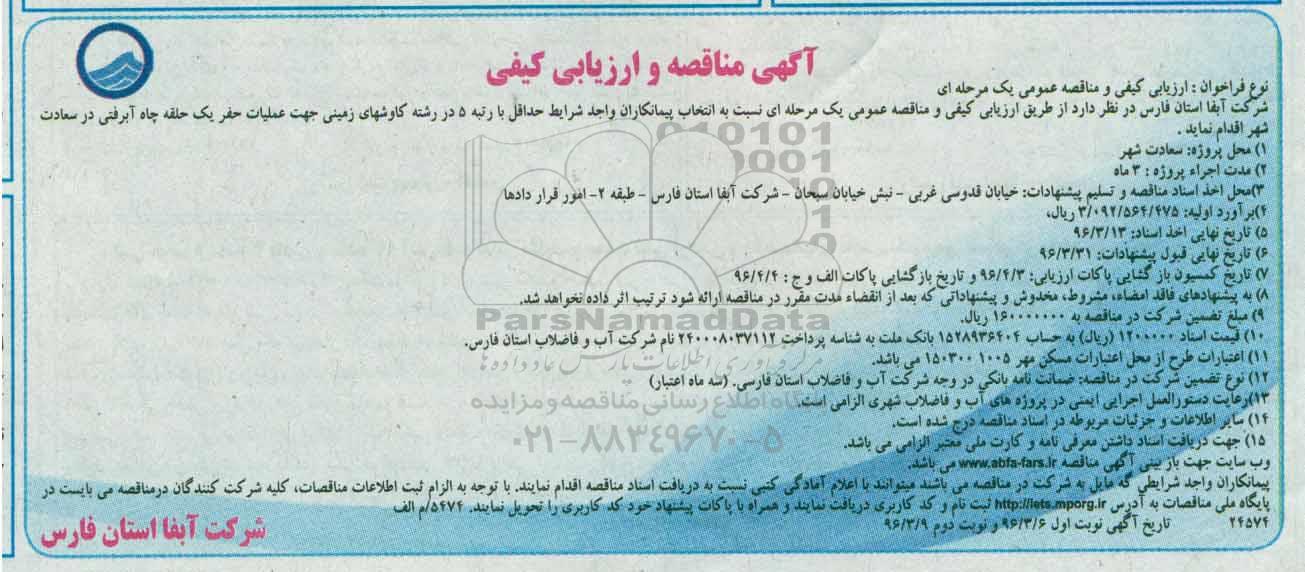 آگهی مناقصه و ارزیابی کیفی
نوع فراخوان : ارزیابی کیفی و مناقصه عمومی یک مرحله ای
شرکت آبفا استان فارس در نظر دارد از طریق ارزیابی کیفی و مناقصه عمومی یک مرحله ای نسبت به انتخاب پیمانکاران واجد شرایط حداقل با رتبه ۵ در رشته کاوشهای زمینی جهت عملیات حفر یک حلقه چاه آبرفتی در سعادت
شهر اقدام نماید .
۱) محل پروژه: سعادت شهر
۲) مدت اجراء پروژه : ۳ ماه
۳)محل اخذ اسناد مناقصه و تسلیم پیشنهادات: خیابان قدوسی غربی - نبش خیابان سبحان - شرکت آبفا استان فارس - طبقه ۲- امور قرار دادها
۴)برآورد اولیه: ۳/۰۹۲/۵۶۴/۴۷۵ ریال،
۵) تاریخ نهایی اخذ اسناد: ۹۶/۳/۱۳
۶) تاریخ نهایی قبول پیشنهادات: ۹۶/۳/۳۱
۷) تاریخ کمسیون باز گشایی پاکات ارزیابی: ۹۶/۴/۳ و تاریخ بازگشایی پاکات الف و ج : ۹۶/۴/۴
۸) به پیشنهادهای فاقد امضاء، مشروط، مخدوش و پیشنهاداتی که بعد از انقضاء مدت مقرر در مناقصه ارائه شود ترتیب اثر داده نخواهد شد.
۹) مبلغ تضمین شرکت در مناقصه به ۱۶۰۰۰۰۰۰۰ ریال.
۱۰) قیمت اسناد ۱۲۰۰۰۰۰ (ریال) به حساب ۱۵۲۸۹۳۶۴۰۴ بانک ملت به شناسه پرداخت ۲۴۰۰۰۸۰۳۷۱۱۲ نام شرکت آب و فاضلاب استان فارس.
۱۱) اعتبارات طرح از محل اعتبارات مسکن مهر ۱۰۰۵ ۱۵۰۳۰۰ می باشد.
۱۲) نوع تضمین شرکت در مناقصه: ضمانت نامه بانکی در وجه شرکت آب و فاضلاب استان فارسی. (سه ماه اعتبار)
۱۳)رعایت دستورالعمل اجرایی ایمنی در پروژه های آب و فاضلاب شهری الزامی است.
۱۴) سایر اطلاعات و جزئیات مربوطه در اسناد مناقصه درج شده است.
۱۵) جهت دریافت اسناد داشتن معرفی نامه و کارت ملی معتبر الزامی می باشد.
وب سایت جهت باز بینی آگهی مناقصه www.abfa-fars.ir می باشد.
پیمانکاران واجد شرایطی که مایل به شرکت در مناقصه می باشند میتوانند با اعلام آمادگی کتبی نسبت به دریافت اسناد مناقصه اقدام نمایند. با توجه به الزام ثبت اطلاعات مناقصات، کلیه شرکت کنندگان درمناقصه می بایست در
پایگاه ملی مناقصات به آدرس http://iets.mporg.ir ثبت نام و کد کاربری دریافت نمایند و همراه با پاکات پیشنهاد خود کد کاربری را تحویل نمایند. ۵۴۷۴/م الف
۲۴۵۷۴ تاریخ آگهی نوبت اول ۹۶/۳/۶ و نوبت دوم ۹۶/۳/۹
شرکت آبفا استان فارس
ParsNamadData
مرکز فرآوری اطلاعات پارس نماد داده ها
پایگاه اطلاع رسانی مناقصه و مزایده
۰۲۱-۸۸۳۴۹۶۷۰-۵